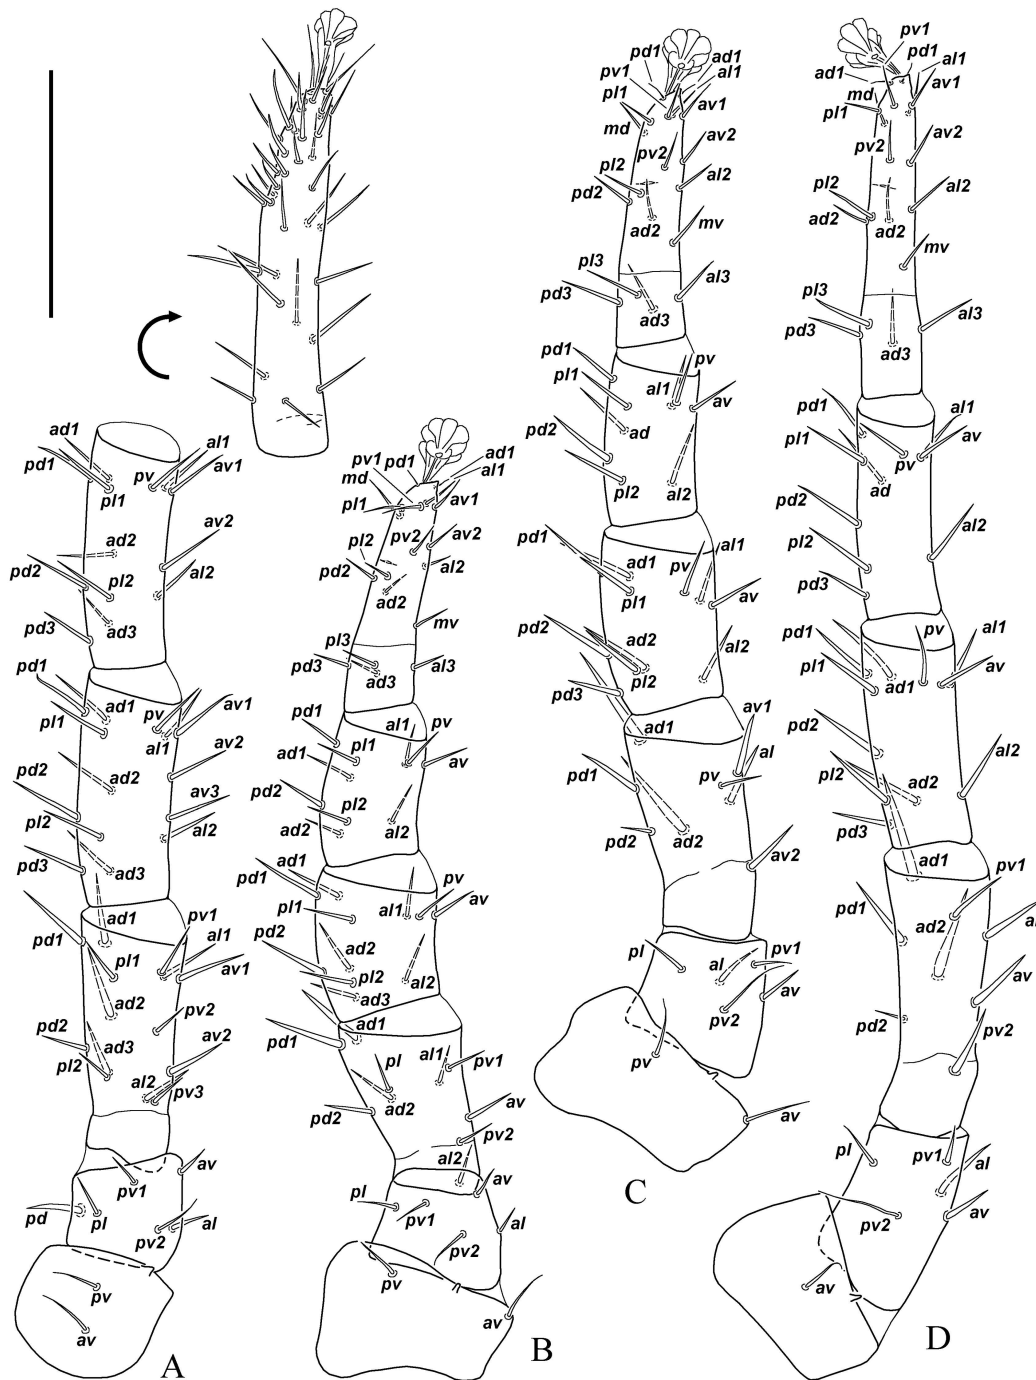 ad1
pd1
pl1
pv
al1
av1
ad2
av2
pd2
pl2
al2
ad3
pd3
pd1
ad1
pv
av1
pl1
al1
av2
pd2
ad2
av3
pl2
al2
pd3
ad3
ad1
pv1
pd1
pl1
al1
av1
ad2
pv2
pd2
ad3
av2
pl2
al2
pv3
av
pv1
pd
pl
al
pv2
pv
av
A
pv1
pd1
ad1
al1
md
pl1
av1
pv2
av2
pl2
pd2
al2
ad2
mv
pl3
pd3
al3
ad3
pd1
al1
pv
ad1
pl1
av
pd2
pl2
ad2
al2
ad1
pv
pd1
av
pl1
al1
pd2
ad2
pl2
al2
ad3
ad1
pd1
al1
pv1
pl
ad2
av
pd2
pv2
al2
av
pl
pv1
al
pv2
pv
av
B
pd1
ad1
pv1
al1
pl1
av1
md
pv2
av2
pl2
al2
pd2
ad2
mv
pl3
al3
pd3
ad3
pd1
pv
pl1
al1
av
ad
pd2
pl2
al2
pd1
al1
ad1
pv
pl1
av
pd2
ad2
al2
pl2
pd3
ad1
av1
al
pd1
pv
pd2
ad2
av2
pl
pv1
al
av
pv2
pv
av
C
pv1
pd1
ad1
al1
md
av1
pl1
pv2
av2
pl2
al2
ad2
ad2
mv
pl3
al3
pd3
ad3
pd1
al1
pl1
av
pv
ad
pd2
al2
pl2
pd3
pv
al1
pd1
pl1
av
ad1
pd2
al2
pl2
ad2
pd3
ad1
pv1
pd1
ad2
av
pd2
pv2
pl
pv1
al
av
pv2
av
D